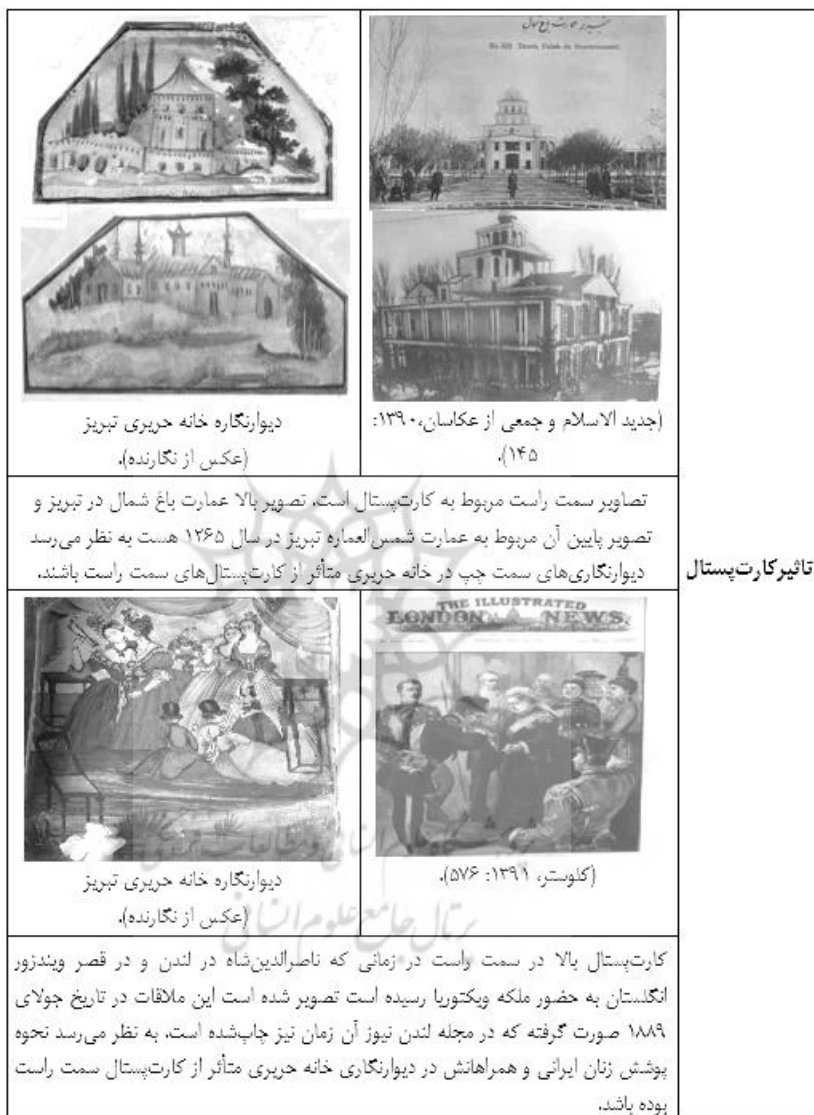 تاثیرکارت‌پستال
No. 522 Tauris, Palais du Gouvernement.
(جدید الاسلام و جمعی از عکاسان،۱۳۹۰:
۱۴۵).
دیوارنگاره خانه حریری تبریز
(عکس از نگارنده).
تصاویر سمت راست مربوط به کارت‌پستال است. تصویر بالا عمارت باغ شمال در تبریز و
تصویر پایین آن مربوط به عمارت شمس‌العماره تبریز در سال ۱۲۶۵ هست به نظر می‌رسد
دیوارنگاری‌های سمت چپ در خانه حریری متأثر از کارت‌پستال‌های سمت راست باشند.
THE ILLUSTRATED
LONDON NEWS.
(کلوستر، ۱۳۹۱: ۵۷۶).
دیوارنگاره خانه حریری تبریز
(عکس از نگارنده).
پژوهشگاه علوم انسانی و مطالعات فرهنگی
پرتال جامع علوم انسانی
کارت‌پستال بالا در سمت راست در زمانی که ناصرالدین‌شاه در لندن و در قصر ویندزور
انگلستان به حضور ملکه ویکتوریا رسیده است تصویر شده است این ملاقات در تاریخ جولای
۱۸۸۹ صورت گرفته که در مجله لندن نیوز آن زمان نیز چاپ‌شده است. به نظر می‌رسد نحوه
پوشش زنان ایرانی و همراهانش در دیوارنگاری خانه حریری متأثر از کارت‌پستال سمت راست
بوده باشد.